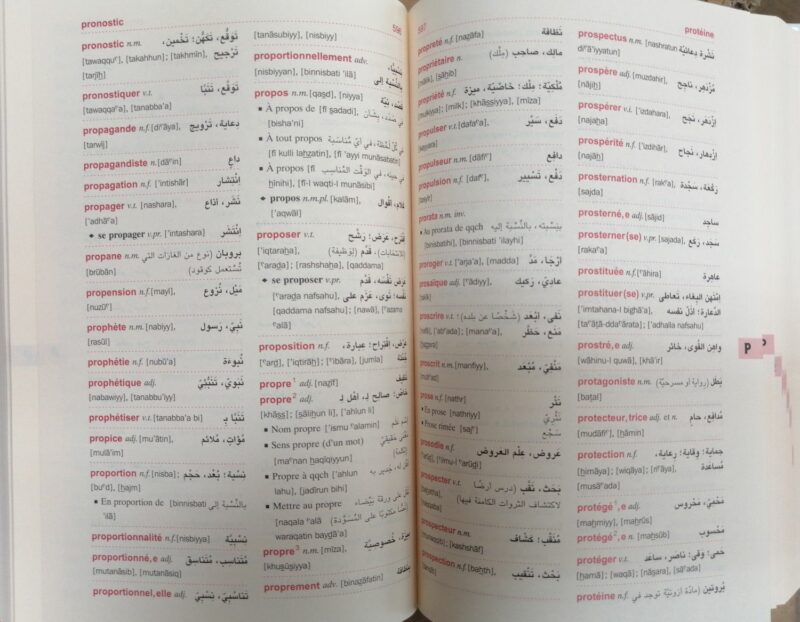 pronostic
596
pronostic n.m. تَوَقُّع، تَكَهُّن؛ تَخْمين،
[tawaqquᶜ], [takahhun]; [takhmīn], تَرْجيح
[tarjīḥ]
pronostiquer v.t. تَوَقَّع، تَنَبَّأ
[tawaqqaᶜa], [tanabba'a]
propagande n.f. [diᶜāya], دِعاية، تَرْويج
[tarwīj]
propagandiste n. [dāᶜin] داعٍ
propagation n.f. ['intishār] اِنْتِشار
propager v.t. [nashara], نَشَر، اذاع
['adhāᶜa]
◆ se propager v.pr. ['intashara] اِنْتَشَر
propane n.m. بروبان (نوع من الغازات التي
[brūbān] تُستعمل كوقود)
propension n.f. [mayl], مَيْل، نُزوع
[nuzūᶜ]
prophète n.m. [nabiyy], نَبيّ، رَسول
[rasūl]
prophétie n.f. [nubū'a] نُبوءَة
prophétique adj. نَبَويّ، تَنَبُّئيّ
[nabawiyy], [tanabbu'iyy]
prophétiser v.t. [tanabba'a bi] تَنَبَّأ بـ
propice adj. [mu'ātin], مُؤاتٍ، مُلائم
[mulā'im]
proportion n.f. [nisba]; نِسْبة؛ بُعْد، حَجْم
[buᶜd], [ḥajm]
■ En proportion de [binnisbati بالنِّسْبة إلى
'ilā]
proportionnalité n.f. [nisbiyya] نِسْبيّة
proportionné,e adj. مُتَناسب، مُتَناسق
[mutanāsib], [mutanāsiq]
proportionnel,elle adj. تَناسُبيّ، نِسْبيّ
[tanāsubiyy], [nisbiyy]
proportionnellement adv. نِسْبيًّا،
[nisbiyyan], [binnisbati 'ilā] بالنِّسْبة إلى
propos n.m. [qaṣd], [niyya] قَصْد، نيّة
■ À propos de [fī ṣadadi], في صَدَد، بشأن
[bisha'ni]
■ À tout propos في كُلّ لَحْظة، في أيّ مُناسَبة
[fī kulli laḥẓatin], [fī 'ayyi munāsabatin]
■ À propos [fī في حينه، في الوَقْت المُناسِب
ḥīnihi], [fi l-waqti l-munāsibi]
◆ propos n.m.pl. [kalām], كَلام، اقْوال
['aqwāl]
proposer v.t. اقترَح، عَرَض؛ رَشَّح
['iqtaraḥa], (لانتخابات)، قدَّم (لِوَظيفة)
[ᶜaraḍa]; [rashshaḥa], [qaddama]
◆ se proposer v.pr. عَرَض نَفْسَه، قَدَّم
[ᶜaraḍa nafsahu], نَفْسَه؛ نَوى، عزَم على
[qaddama nafsahu]; [nawā], [ᶜazama
ᶜalā]
proposition n.f. عَرْض، اقْتِراح؛ عِبارة،
[ᶜarḍ], ['iqtirāḥ]; [ᶜibāra], [jumla] جُمْلة
propre¹ adj. [naẓīf] نَظيف
propre² adj. خاصّ؛ صالح لـ، أهْل لـ
[khāṣṣ]; [ṣāliḥun li], ['ahlun li]
■ Nom propre ['ismu ᶜalamin] اسْم عَلَم
■ Sens propre (d'un mot) مَعْنى حَقيقيّ
[maᶜnan ḥaqīqiyyun]
■ Propre à qqch ['ahlun أهْل لَه، جَدير به
lahu], [jadīrun bihi]
■ Mettre au propre نَقَل على ورقة بَيْضاء
[naqala ᶜalā (ما كان مكتوبًا على المُسَوَّدة)
waraqatin bayḍā'a]
propre³ n.m. [mīza], ميزة، خُصوصيّة
[khuṣūṣiyya]
proprement adv. [binaẓāfatin] بنَظافة
597
protéine
propreté n.f. [naẓāfa] نَظافة
propriétaire n. مالك، صاحِب (مِلْك)
[mālik], [ṣāḥib]
propriété n.f. مُلْكيّة؛ مِلْك؛ خاصّيّة، ميزة
[mulkiyya]; [milk]; [khāṣṣiyya], [mīza]
propulser v.t. [dafaᶜa], دَفَع، سَيَّر
[sayyara]
propulseur n.m. [dāfiᶜ] دافِع
propulsion n.f. [dafᶜ], دَفْع، تَسْيير
[tasyīr]
prorata n.m. inv.
■ Au prorata de qqch بنِسْبته، بالنِّسْبة إليه
[binisbatihi], [binnisbati 'ilayhi]
proroger v.t. ['arja'a], [madda] أرْجَأ، مَدَّ
prosaïque adj. [ᶜādiyy], عاديّ، رَكيك
[rakīk]
proscrire v.t. نَفى، ابْعد (شَخْصًا عن بلده)؛
[nafā], ['abᶜada]; [manaᶜa], مَنَع، حَظَر
[ḥaẓara]
proscrit n.m. [manfiyy], مَنْفيّ، مُبْعَد
[mubᶜad]
prose n.f. [nathr] نَثْر
■ En prose [nathriyy] نَثْريّ
■ Prose rimée [sajᶜ] سَجْع
prosodie n.f. عَروض، عِلْم العَروض
[ᶜarūḍ], [ᶜilmu-l ᶜarūḍi]
prospecter v.t. بَحَث، نَقَّب (درس أرضًا
[baḥatha], لاكتشاف الثروات الكامنة فيها)
[naqqaba]
prospecteur n.m. مُنَقِّب؛ كَشّاف
[munaqqib]; [kashshāf]
prospection n.f. [baḥth], بَحْث، تَنْقيب
[tanqīb]
prospectus n.m. [nashratun نَشْرة دِعائيّة
diᶜā'iyyatun]
prospère adj. [muzdahir], مُزْدَهِر، ناجح
[nājiḥ]
prospérer v.t. ['izdahara], اِزْدهر، نَجَح
[najaḥa]
prospérité n.f. ['izdihār], اِزْدِهار، نَجاح
[najāḥ]
prosternation n.f. [rakᶜa], رَكْعة، سَجْدة
[sajda]
prosterné,e adj. [sājid] ساجد
prosterner (se) v.pr. [sajada], سَجَد، ركَع
[rakaᶜa]
prostituée n.f. [ᶜāhira] عاهِرة
prostituer (se) v.pr. اِمْتَهن البِغاء، تَعاطى
['imtahana-l bighā'a], الدّعارة؛ أذَلَّ نَفْسه
[taᶜāṭā-ddaᶜārata]; ['adhalla nafsahu]
prostré,e adj. واهِن القُوى، خائر
[wāhinu-l quwā], [khā'ir]
protagoniste n.m. بَطَل (رواية أو مسرحيّة)
[baṭal]
protecteur,trice adj. et n. مُدافِع، حامٍ
[mudāfiᶜ], [ḥāmin]
protection n.f. حِماية؛ وِقاية؛ رعاية،
[ḥimāya]; [wiqāya]; [riᶜāya], مُساعَدة
[musāᶜada]
protégé¹,e adj. مَحْميّ، مَحْروس
[maḥmiyy], [maḥrūs]
protégé²,e n. [maḥsūb] مَحْسوب
protéger v.t. حَمى؛ وَقى؛ ناصَر، ساعَد
[ḥamā]; [waqā]; [nāṣara], [sāᶜada]
protéine n.f. بُروتين (مادّة آزوتيّة توجد في
P